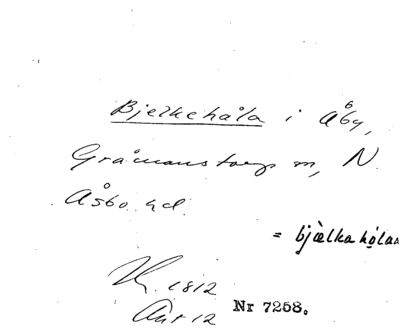 Bjelkehåla i Åby,
Gråmanstorps sn, N.
Åsbo hd.
= bjælka hóla
K. 1812
Nr 7258.